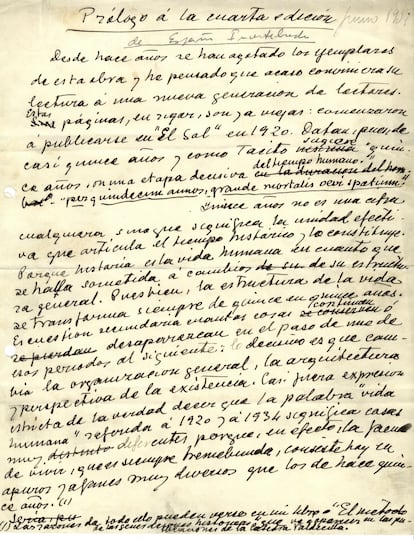 Prólogo á la cuarta edición
junio 1934
de España Invertebrada
Desde hace años se han agotado los ejemplares
de esta obra y he pensado que acaso conviniera su
lectura a una nueva generación de lectores.
Estas páginas, en rigor, son ya viejas: comenzaron
a publicarse en "El Sol" en 1920. Datan, pues, de
casi quince años y como Tácito sugiere "quin-
ce años, son una etapa decisiva en la duración del hom-
del tiempo humano."
bre" - "per quindecim annos, grande mortalis aevi spatium."
Quince años no es una cifra
cualquiera sino que significa la unidad efecti-
va que articula el tiempo histórico y lo constituye.
Porque historia es la vida humana en cuanto que
se halla sometida a cambios de su de su estructu-
ra general. Pues bien, la estructura de la vida
se transforma siempre de quince en quince años.
Es cuestión secundaria cuantas cosas continúen ó
se pierdan desaparezcan en el paso de uno de
esos periodos al siguiente: lo decisivo es que cam-
bia la organización general, la arquitectura
y perspectiva de la existencia. Casi fuera expresión
estricta de la verdad decir que la palabra "vida
humana" referida á 1920 y á 1934 significa cosas
muy distinto diferentes; porque, en efecto, la faena
de vivir, que es siempre tremebunda, consiste hoy en
apuros y afanes muy diversos que los de hace quin-
ce años. (1)
(1) Las razones de todo ello pueden verse en mi libro "El método
de las generaciones históricas" que va a aparecer en las pu-
blicaciones de la Cátedra Valdecilla.